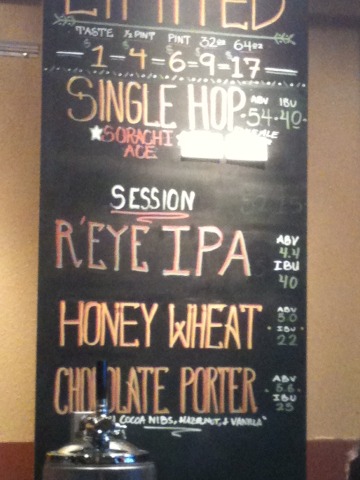 LIMITED
TASTE ½ PINT PINT 32oz 64oz
$1 - $4 - $6 - $9 - $17
SINGLE HOP ABV IBU
5.4 - 40
★SORACHI
ACE
SESSION
R'EYE IPA
ABV
4.4
IBU
40
HONEY WHEAT
ABV
5.0
IBU
22
CHOCOLATE PORTER
ABV
5.6
IBU
25
COCOA NIBS, HAZELNUT, & VANILLA"